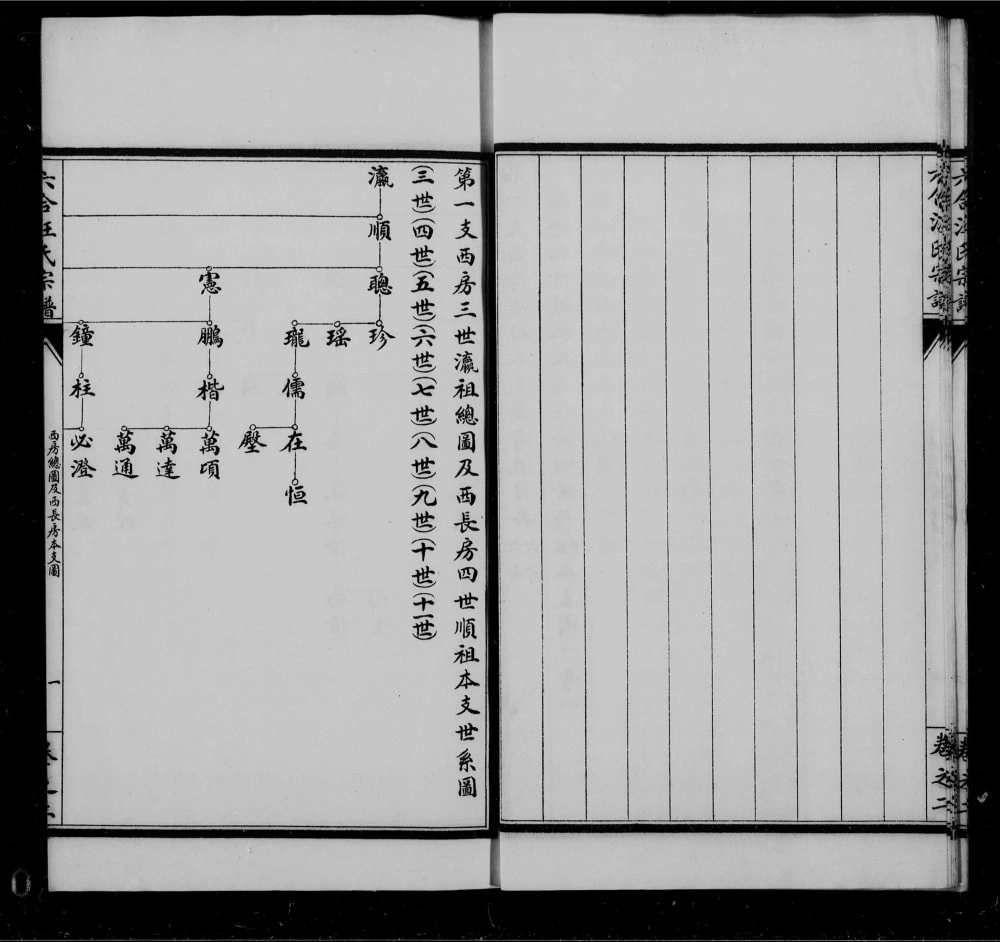 卷之二
第一支西房三世瀛祖總圖及西長房四世順祖本支世系圖
(三世)(四世)(五世)(六世)(七世)(八世)(九世)(十世)(十一世)
瀛
順
聰
珍
瑶
瓏
儒
在
恒
壂
憲
鵬
楷
萬頃
萬達
萬通
鐘
柱
必澄
六合汪氏宗譜
西房總圖及西長房本支圖
一
卷之二